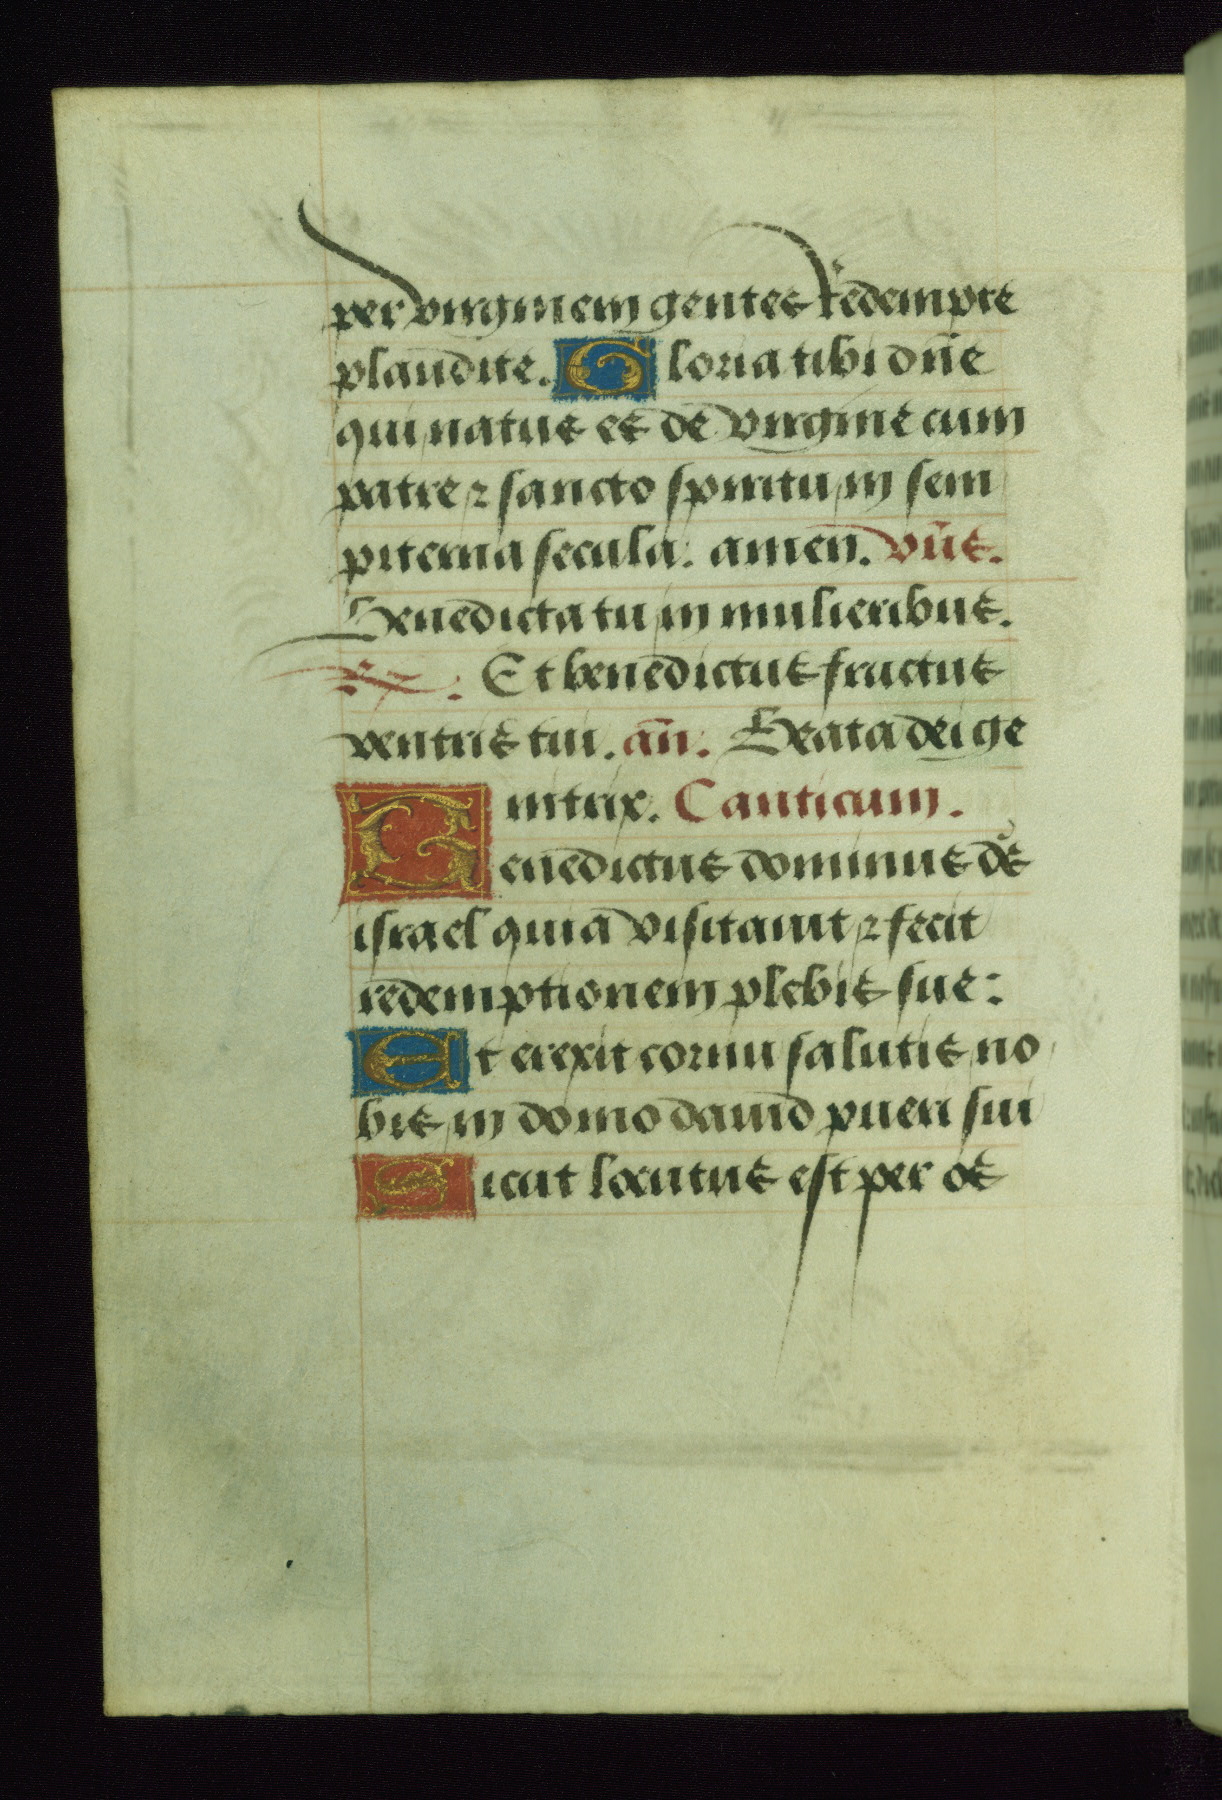 per virginem gentes redempte
plaudite. Gloria tibi dñe
qui natus es de virgine cum
patre ⁊ sancto spiritu in sem
piterna secula. amen. vũs.
Benedicta tu in mulieribus.
℞. Et benedictus fructus
ventris tui. añ. Beata dei ge
nitrix. Canticum.
Benedictus dominus de᷒
israel quia visitauit ⁊ fecit
redemptionem plebis sue:
Et erexit cornu salutis no
bis in domo dauid pueri sui
Sicut locutus est per os